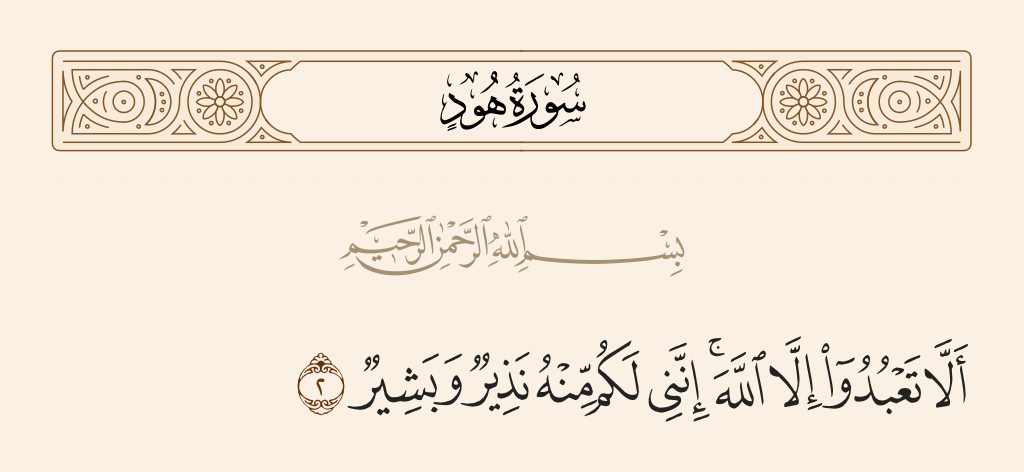 سُورَةُ هُودٍ
بِسْمِ ٱللَّهِ ٱلرَّحْمَٰنِ ٱلرَّحِيمِ
أَلَّا تَعْبُدُوٓا۟ إِلَّا ٱللَّهَ ۚ إِنَّنِى لَكُم مِّنْهُ نَذِيرٌ وَبَشِيرٌ ٢